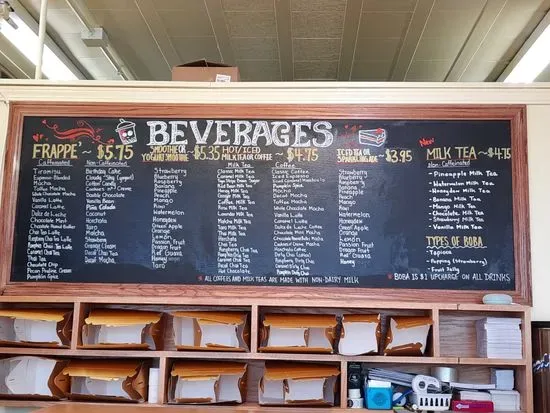 BEVERAGES
FRAPPE' ~ $5.75
Caffeinated
Tiramisu
Espresso-Blended
Mocha
Toffee Mocha
White Chocolate Mocha
Vanilla Latte
Caramel Latte
Dulce de Leche
Chocolate Mint
Chocolate Peanut Butter
Chai Tea
Raspberry Chai Tea Latte
Pumpkin Chai Tea Latte
Caramel Chai Tea
Thai Tea
Chocolate Chip
Pecan Praline Cream
Pumpkin Spice
Non-Caffeinated
Birthday Cake
Cotton Candy
Cookies n' Creme
Double Chocolate
Vanilla Bean
Piña Colada
Coconut
Horchata
Taro
Matcha
Strawberry
Orange Cream
Decaf Chai Tea
Decaf Mocha
SMOOTHIE OR
YOGURT SMOOTHIE ~ $5.35
Strawberry
Blueberry
Raspberry
Banana
Pineapple
Peach
Mango
Kiwi
Watermelon
Honeydew
Green Apple
Orange
Lemon
Passion Fruit
Dragon Fruit
Red Guava
Honey
Taro
HOT/ICED
MILK TEA OR COFFEE ~ $4.75
Milk Tea
Classic Milk Tea
Caramel Milk Tea
Thai Milk Tea
Honey Milk Tea
Mango Milk Tea
Coconut Milk Tea
Chocolate Milk Tea
Rose Milk Tea
Lavender Milk Tea
Matcha Milk Tea
Taro Milk Tea
Thai Tea
Horchata
Chai Tea
Raspberry Chai Tea
Caramel Chai Tea
Pumpkin Chai Tea
Decaf Chai Tea
Hot Chocolate
Coffee
Classic Coffee
Iced Espresso
Pumpkin Spice
Mocha
Decaf Mocha
Toffee Mocha
White Chocolate Mocha
Vanilla Latte
Caramel Latte
Dulce de Leche Coffee
Chocolate Mint Mocha
Chocolate Peanut Butter Mocha
Caramel Mocha
Dirty Chai
Raspberry Dirty Chai
Caramel Dirty Chai
Pumpkin Dirty Chai
ICED TEA OR
SPARKLING ADE ~ $3.95
Strawberry
Blueberry
Raspberry
Banana
Pineapple
Peach
Mango
Kiwi
Watermelon
Honeydew
Green Apple
Orange
Lemon
Passion Fruit
Dragon Fruit
Red Guava
Honey
New
MILK TEA ~ $4.75
Non-Caffeinated
- Pineapple Milk Tea
- Watermelon Milk Tea
- Honeydew Milk Tea
- Banana Milk Tea
- Mango Milk Tea
- Chocolate Milk Tea
- Strawberry Milk Tea
- Vanilla Milk Tea
TYPES OF BOBA
- Tapioca
- Popping (Strawberry)
- Fruit Jelly
* ALL COFFEES AND MILK TEAS ARE MADE WITH NON-DAIRY MILK
* BOBA IS $1 UPCHARGE ON ALL DRINKS